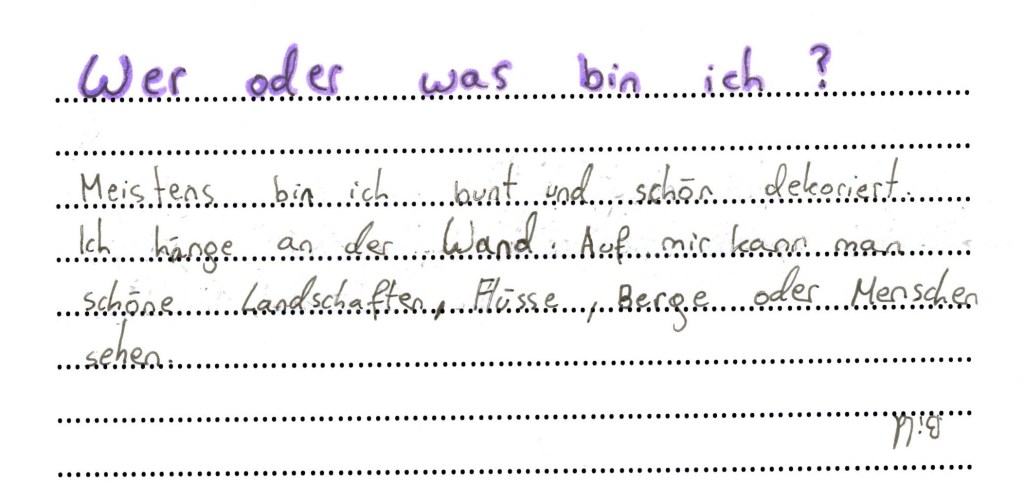 Wer oder was bin ich?
Meistens bin ich bunt und schön dekoriert.
Ich hänge an der Wand. Auf mir kann man
schöne Landschaften, Flüsse, Berge oder Menschen
sehen.
Bild